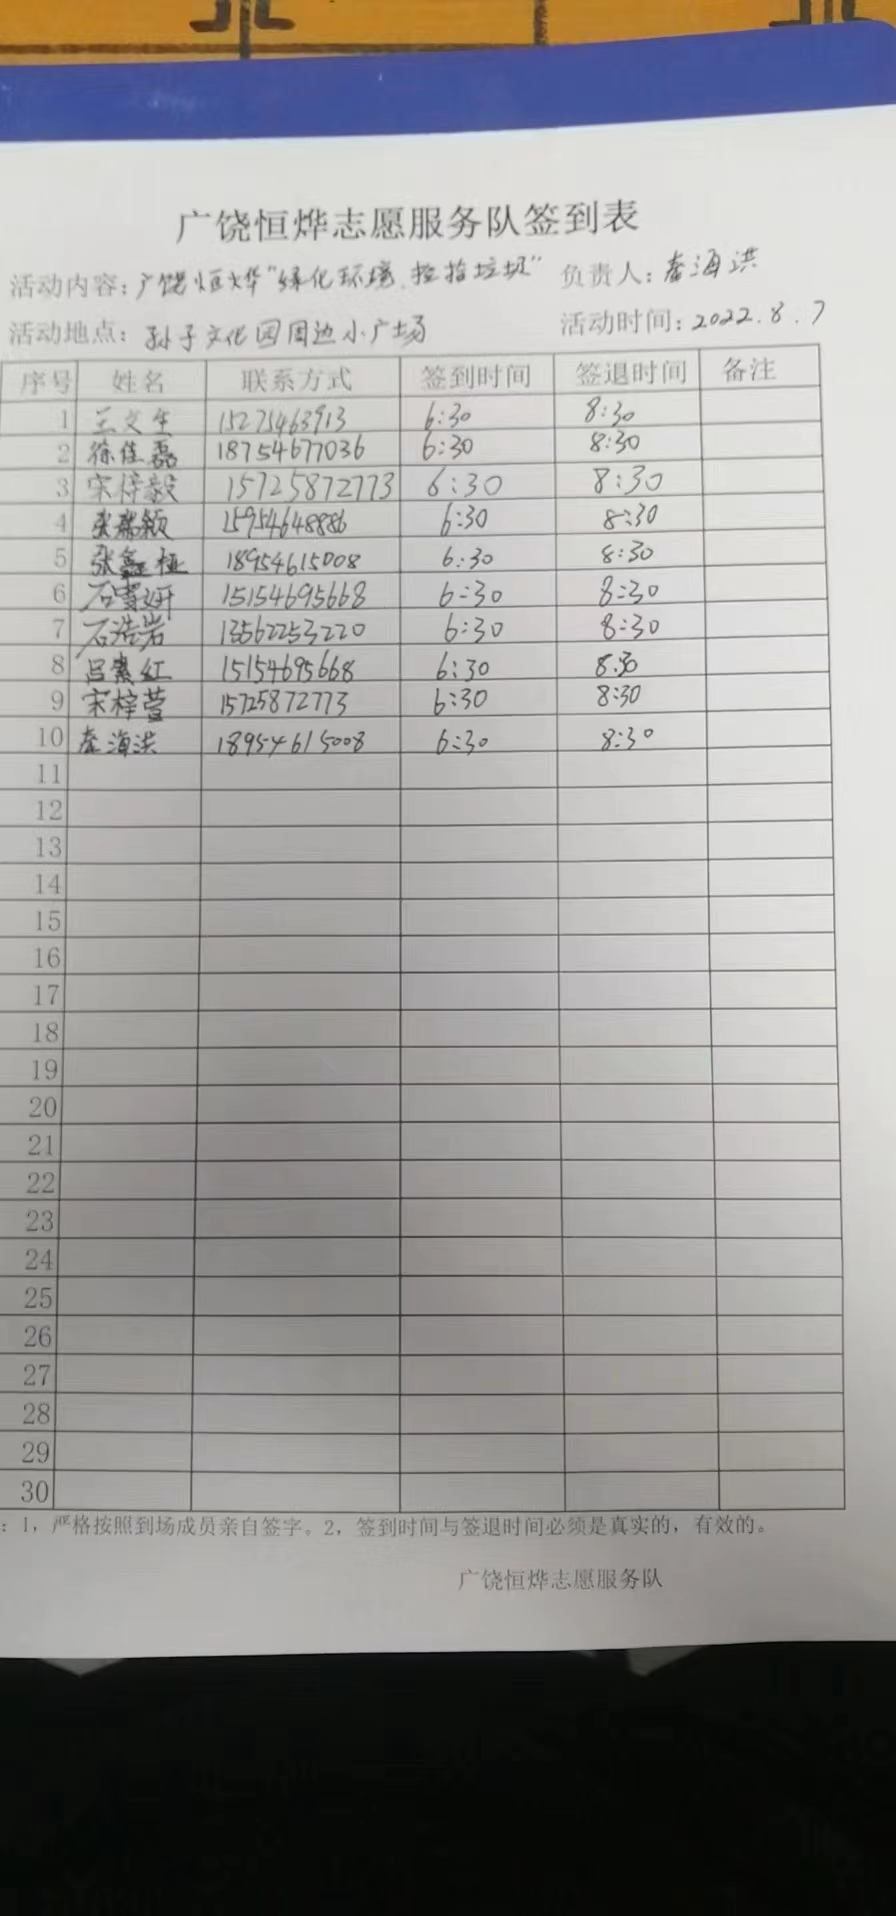 广饶恒烨志愿服务队签到表
活动内容：广饶恒烨“绿化环境、捡拾垃圾” 负责人：秦海洪
活动地点：孙子文化园周边小广场 活动时间：2022.8.7
序号 姓名 联系方式 签到时间 签退时间 备注
1 兰文生 15275463913 6:30 8:30
2 徐佳磊 18754677036 6:30 8:30
3 宋梓毅 15725872773 6:30 8:30
4 张瑞颖 15954648886 6:30 8:30
5 张鑫桠 18954615008 6:30 8:30
6 石雪妍 15154695668 6:30 8:30
7 石浩岩 13562253220 6:30 8:30
8 吕素红 15154695668 6:30 8:30
9 宋梓萱 15725872773 6:30 8:30
10 秦海洪 18954615008 6:30 8:30
11
12
13
14
15
16
17
18
19
20
21
22
23
24
25
26
27
28
29
30
：1，严格按照到场成员亲自签字。2，签到时间与签退时间必须是真实的，有效的。
广饶恒烨志愿服务队